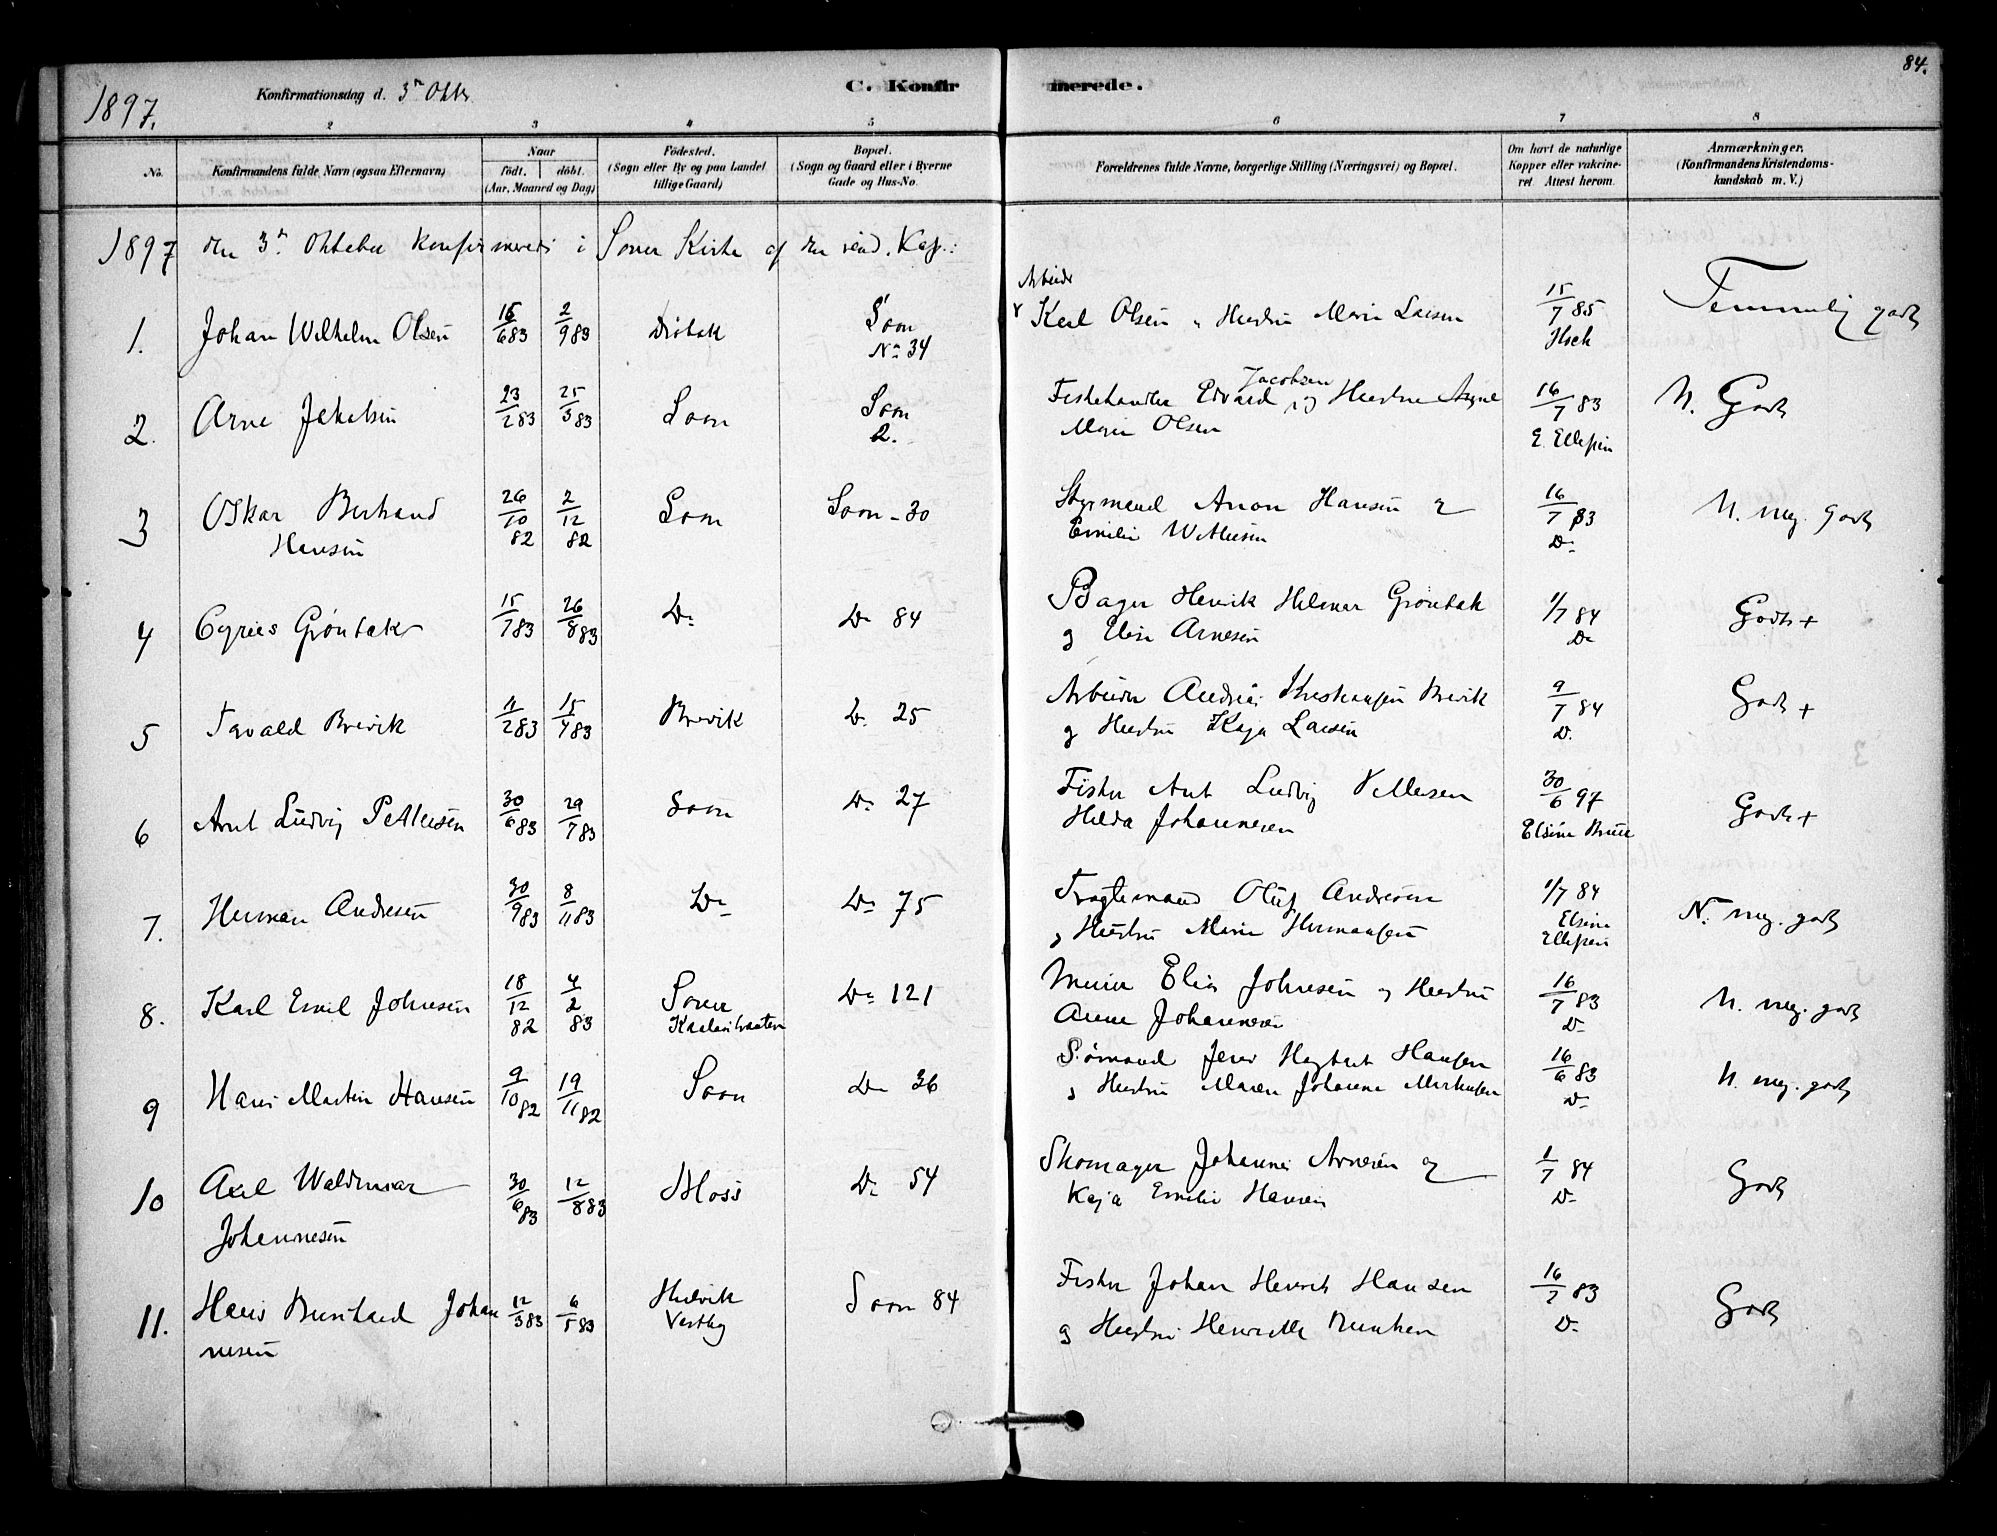 84.
1897. Konfirmationsdag d. 3n Oktbr C. Konfirmerede.
2 3 4 5 6 7 8
No. Konfirmandens fulde Navn (ogsaa Efternavn)
Naar
födt. döbt.
(Aar, Maaned og Dag)
Födested.
(Sogn eller By og paa Landet
tillige Gaard)
Bopæl.
(Sogn og Gaard eller i Byerne
Gade og Hus-No.
Forældrenes fulde Navne, borgerlige Stilling (Næringsvei) og Bopæl.
Om havt de naturlige
Kopper eller vakcine-
ret. Attest herom.
Anmærkninger.
(Konfirmandens Kristendoms-
kundskab m. V.)
1897 den 3n Oktober konfirmereds i Soner Kirke af den resid. Kap.:
1. Johan Wilhelm Olsen 15/6 83 2/9 83 Dröbak Soon No 34
Arbeider Karl Olsen og Hustru Marie Larsen 15/7 85 Temmelig godt
2. Arne Jakobsen 23/2 83 25/3 83 Soon Soon 2.
Fiskehandler Edvard Jacobsen og Hustru
Marie Olsen 16/7 83 E. Ellefsen N. Godt
3 Oskar Berhard
Hansen 26/10 82 2/12 82 Soon Soon - 30
Styrmand Anon Hansen og
Emilie 16/7 83 Do N. meg. godt
4 Cyrus Grönbak 15/7 83 26/8 83 Do Do 84
Bager Henrik Hilmar Grönbak
og Elise Arnesen 1/7 84 Do Godt +
5 Tarald Brevik 11/2 83 15/4 83 Brevik Do 25
Arbeider Andreas Kristiansen Brevik
og Hustru Kaja Larsen 9/7 84 Do Godt +
6 Arnt Ludvig Pettersen 30/6 83 29/7 83 Soon Do 27
Fisker Arnt Ludvig Pettersen
Hilda Johannesen 30/6 97 Elsine Bruu Godt +
7. Herman Andresen 30/9 83 8/11 83 Do Do 75
Fragtemand Oluf Andresen
og Hustru Marie Hermansen 1/7 84 Elsine
Ellefsen N. meg. godt
8. Karl Emil Johnsen 18/12 82 4/2 83 Soner Do 121
Murer Elias Johnsen og Hustru
Anne Johannesen 16/7 83 Do N. meg. godt
9 Hans Martin Hansen 9/10 82 19/11 82 Soon Do 36
Sømand Jens Hansen
og Hustru Maren Johanne Markusen 16/6 83 Do N. meg. godt
10 Axel Waldemar
Johannesen 30/6 83 12/8 83 Moss Do 54
Skomager Johannes Arnesen og
Kaja Emilie Hansen 1/7 84 Do Godt
11. Hans Bernhard Johan
nesen 12/3 83 6/5 83 Hvidvik
Vestby Soon 84
Fisker Johan Henrik Hansen
og Hustru Henriette 16/7 83 Do Godt